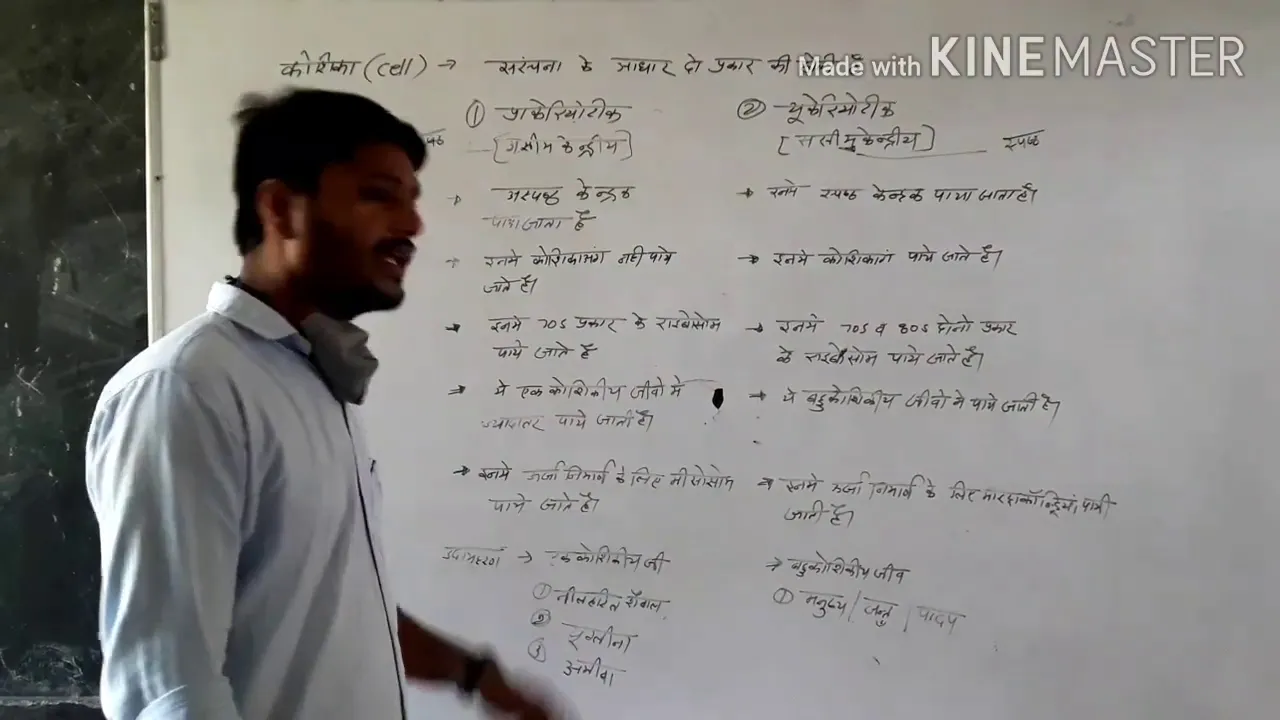 कोशिका (cell) → संरचना के आधार दो प्रकार की होती है
Made with KINEMASTER
① प्रोकेरियोटीक
② यूकेरियोटीक
[ससीमकेन्द्रीय]
स्पष्ठ
→ अस्पष्ठ केन्द्रक
पाया जाता है
→ इनमे स्पष्ठ केन्द्रक पाया जाता है।
→ इनमे कोशिकाअंग नही पाये
जाते है।
→ इनमे कोशिकांग पाये जाते है।
→ इनमे 70S प्रकार के राइबोसोम
पाये जाते है
→ इनमे 70S व 80S दोनो प्रकार
के राइबोसोम पाये जाते है।
→ ये एक कोशिकीय जीवो मे
ज्यादातर पाये जाती है।
→ ये बहुकोशिकीय जीवो मे पाये जाती है।
→ इनमे ऊर्जा निमार्ण के लिए मीसोसोम
पाये जाते है।
→ इनमे ऊर्जा निमार्ण के लिए पायी
जाती है।
उदाहरण → एककोशिकीय जी
→ बहुकोशिकीय जीव
① नीलहरित शैवाल
② यूग्लीना
③ अमीबा
① मनुष्य / जन्तु / पादप